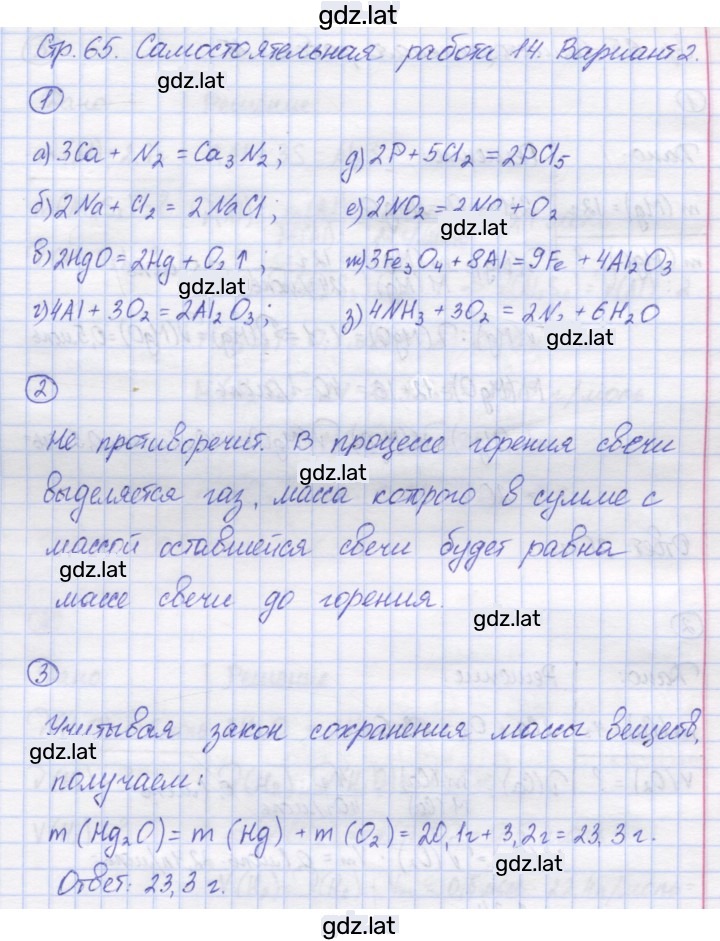 gdz.lat
Стр. 65. Самостоятельная работа 14. Вариант 2.
gdz.lat
1
а) 3Ca + N₂ = Ca₃N₂; д) 2P + 5Cl₂ = 2PCl₅
б) 2Na + Cl₂ = 2NaCl; е) 2NO₂ = 2NO + O₂
gdz.lat
в) 2HgO = 2Hg + O₂↑; ж) 3Fe₃O₄ + 8Al = 9Fe + 4Al₂O₃
gdz.lat
г) 4Al + 3O₂ = 2Al₂O₃; з) 4NH₃ + 3O₂ = 2N₂ + 6H₂O
gdz.lat
2
Не противоречит. В процессе горения свечи
gdz.lat
выделяется газ, масса которого в сумме с
массой оставшейся свечи будет равна
gdz.lat
массе свечи до горения.
gdz.lat
3
Учитывая закон сохранения массы веществ,
gdz.lat
получаем:
m (Hg₂O) = m (Hg) + m (O₂) = 20,1г + 3,2г = 23,3 г.
gdz.lat
Ответ: 23,3 г.
gdz.lat